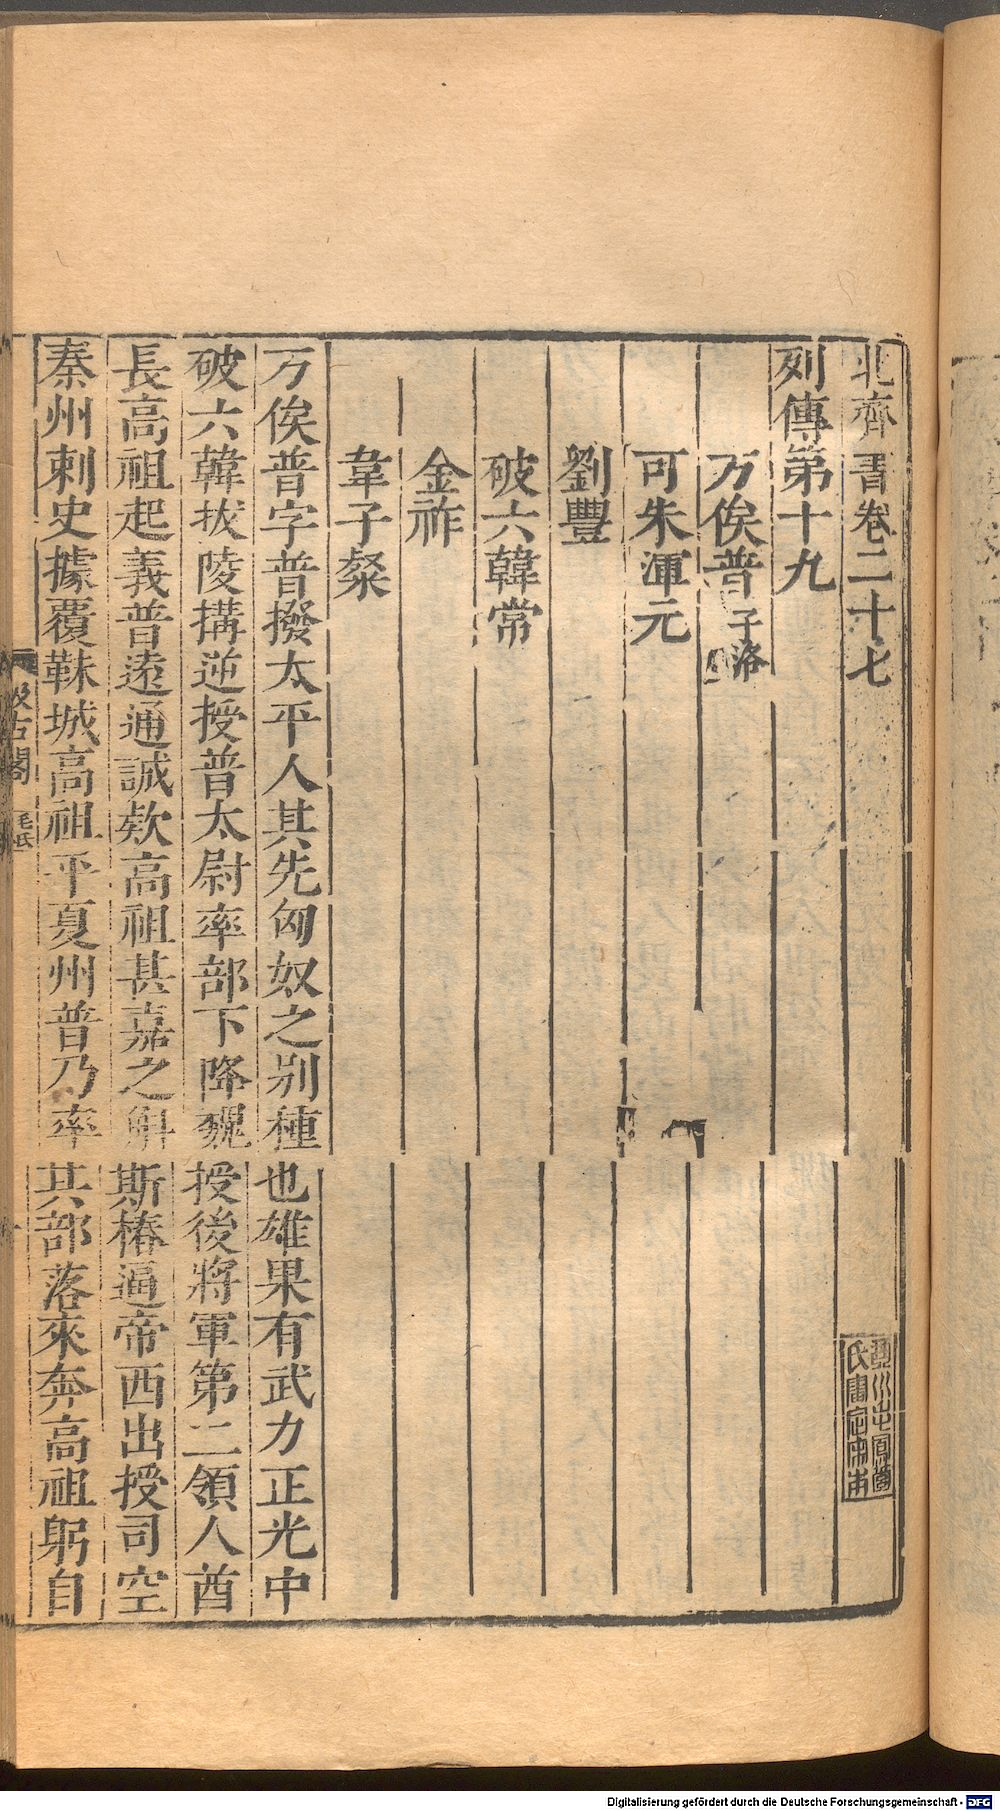 北齊書卷二十七
列傳第十九
万俟普 子洛
可朱渾元
劉豐
破六韓常
金祚
韋子粲
万俟普字普撥太平人其先匈奴之別種也雄果有武力正光中
破六韓拔陵搆逆授普太尉率部下降魏授後將軍第二領人酋
長高祖起義普遠通誠款高祖甚嘉之斛斯椿逼帝西出授司空
秦州刺史據覆靺城高祖平夏州普乃率其部落來奔高祖躬自
汲古閣
毛氏
Digitalisierung gefördert durch die Deutsche Forschungsgemeinschaft - DFG